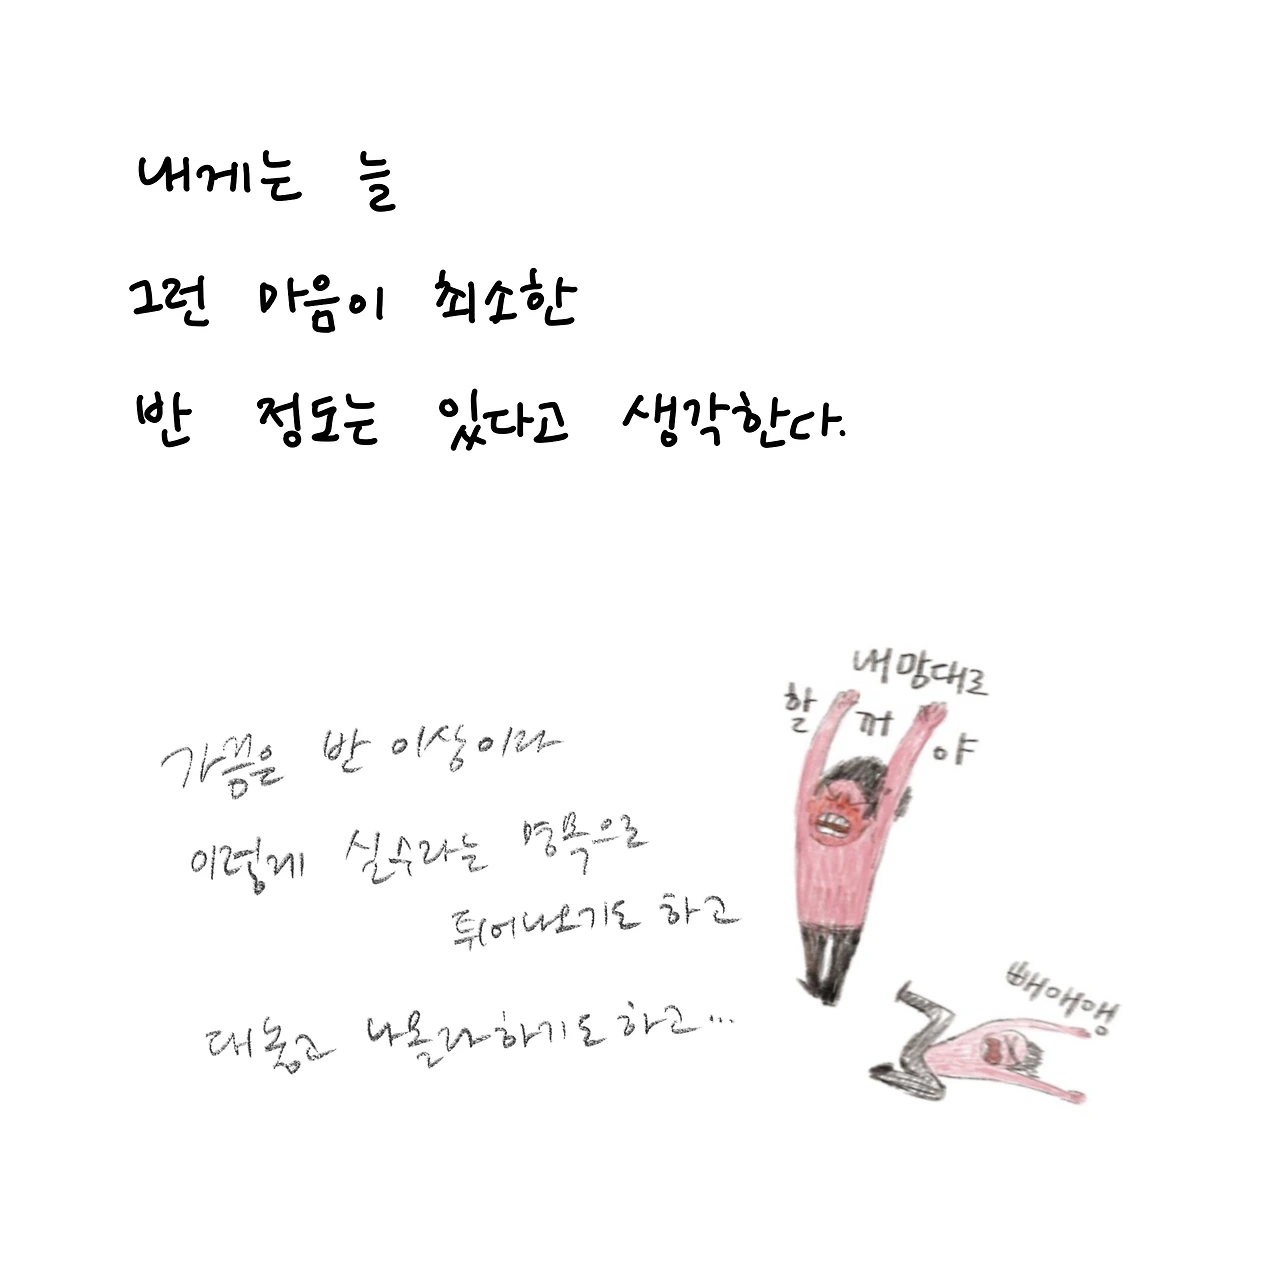 내게는 늘
그런 마음이 최소한
반 정도는 있다고 생각한다.
가끔은 반 이상이라
이렇게 실수라는 명목으로
튀어나오기도 하고
대놓고 나몰라하기도 하고...
내 맘대로
할 꺼 야
빼애앵